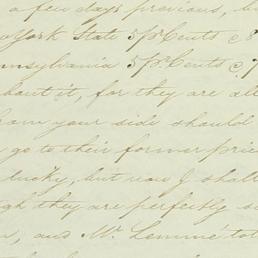 a few days previous, b
York State 5 p Cents @ 8
nnsylvania 5 p Cents @ 7
hout it, for they are all
from your side should
go to their former pric
lucky, but now I shall
gh they are perfectly s
and Mr Lemme tol